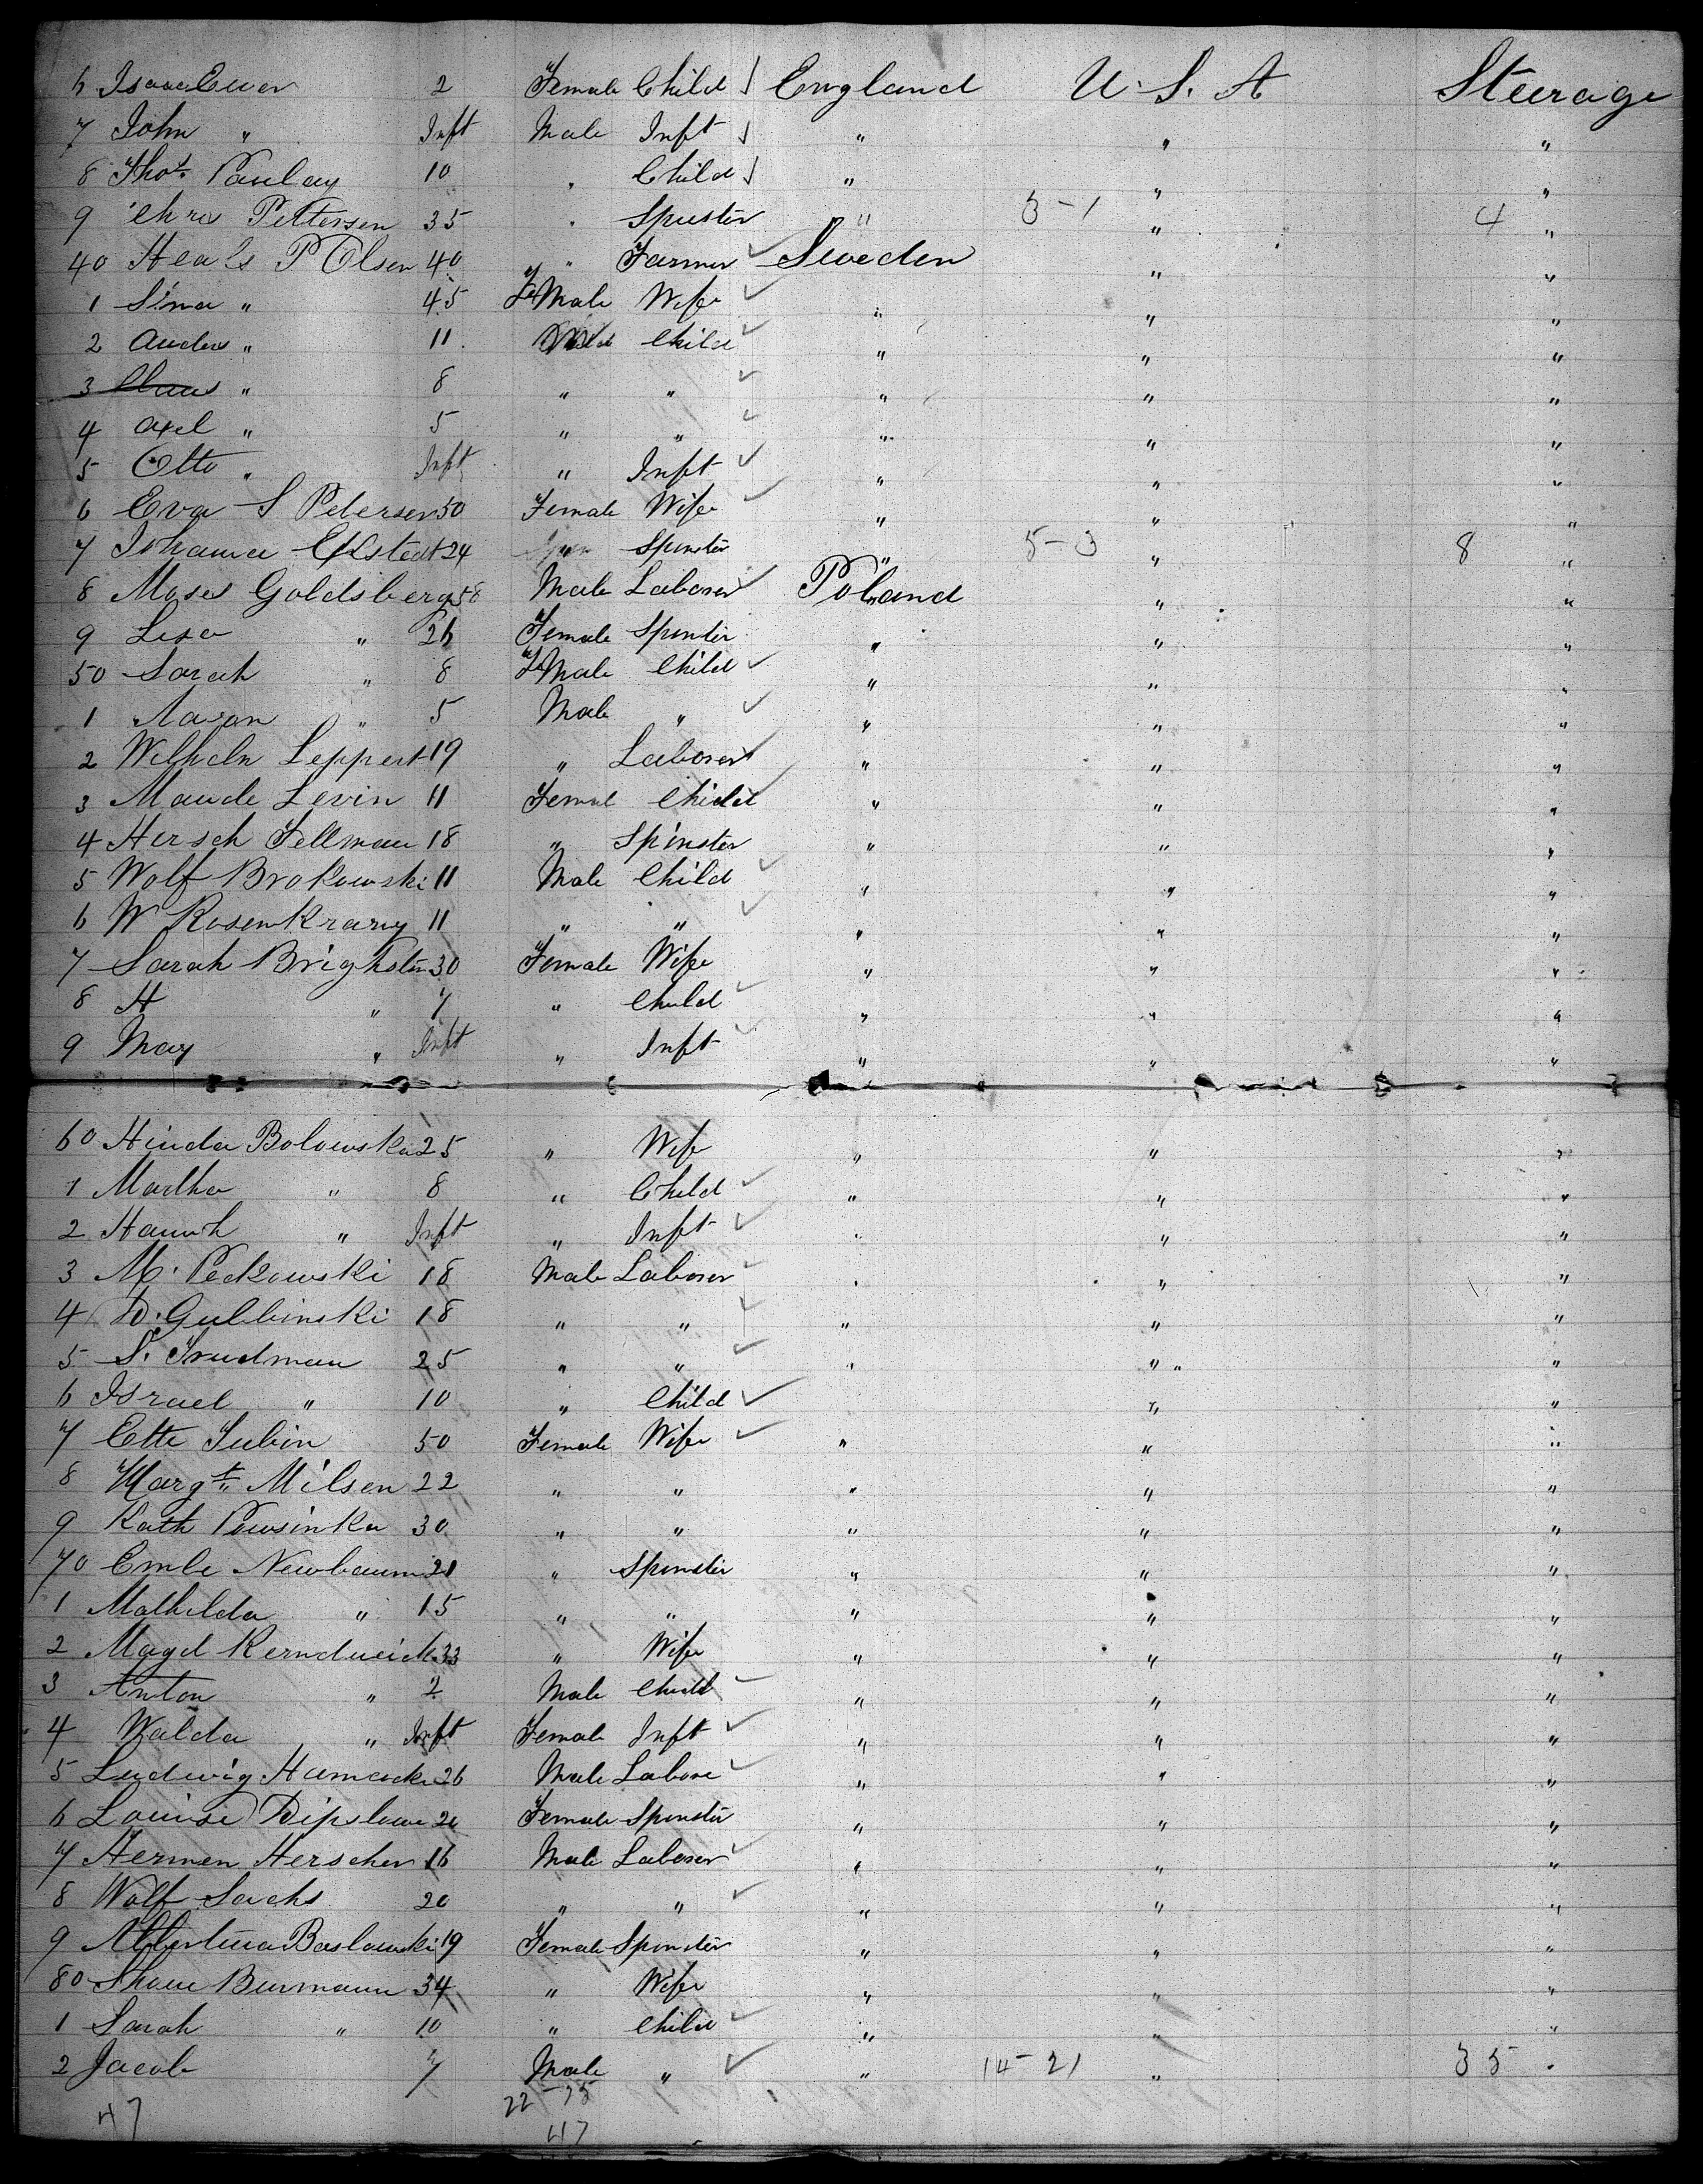 6 Isaac Ewer 2 Female Child England U. S. A Steerage
7 John " Inft Male Inft " " "
8 Thos. Paulay 10 " Child " " "
9 Chra Pettersen 35 " Spinster " 3-1 " 4 "
40 P Olsen 40 " Farmer Sweden " "
1 Sina " 45 FeMale Wife " " "
2 Anders " 11 Child " " "
3 Claus " 8 " " " " "
4 Axel " 5 " " " " "
5 Otto " Inft " Inft " " "
6 Eva S Petersen 50 Female Wife " " "
7 Johanna Ekstedt 24 Spinster " 5-3 " 8 "
8 Moses Goldsberg 58 Male Laborer Poland " "
9 Lesa " 26 Female Spinster " " "
50 Sarah " 8 FeMale Child " " "
1 Aaron " 5 Male " " " "
2 Wilheln Leppert 19 " Laborer " " "
3 Maude Levin 11 Femal Child " " "
4 Hersch Fellman 18 " Spinster " " "
5 Wolf Brokowski 11 Male Child " " "
6 W Rosenkranz 11 " " " " "
7 Sarah Brighstin 30 Female Wife " " "
8 H " 7 " Child " " "
9 May " Inft " Inft " " "
60 Hinda Bolowska 25 " Wife " " "
1 Martha " 8 " Child " " "
2 Hannah " Inft " Inft " " "
3 M. Peckowski 18 Male Laborer " " "
4 D. Gulbinski 18 " " " " "
5 S. Frudman 25 " " " " " "
6 Israel " 10 " Child " "
7 Ette Jubin 50 Female Wife " " "
8 Margt. Milsen 22 " " " " "
9 Kath Powsinka 30 " " " " "
70 Emle Newbaum 21 " Spinster " " "
1 Mathilda " 15 " " " " "
2 Magd Kerndweick 33 " Wife " " "
3 Anton " 2 Male Child " " "
4 Walda " Inft Female Inft " " "
5 Ludwig 26 Male Labore " " "
6 Louise Dipslawe Female Spinster " " "
7 Hermen Herscher 16 Male Laborer " " "
8 Wolf Sachs 20 " " " " "
9 Albertina Baslowski 19 Female Spinster " " "
80 Burmann 34 " Wife " " "
1 Sarah " 10 " Child " " "
2 Jacob 7 Male " " 14-21 " 35 "
22-25
47 47